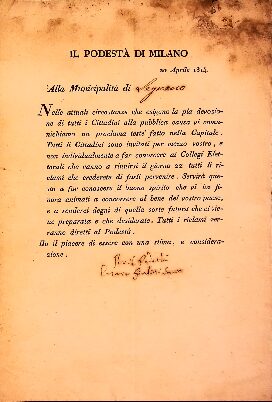 IL PODESTÀ DI MILANO
20 Aprile 1814.
Alla Municipalità di
Nelle attuali circostanze che esigono la più devozio-
ne di tutti i Cittadini alla pubblica causa vi comu-
nichiamo un proclama teste fatto nella Capitale.
Tutti li Cittadini sono invitati per mezzo vostro, e
non individualmente a far conoscere ai Collegi Elet-
torali che vanno a riunirsi il giorno 22 tutti li ri-
clami che crederete di farli pervenire. Servirà que-
sto a far conoscere il buono spirito che vi ha fi-
nora animati a concorrere al bene del vostro paese,
e a rendervi degni di quella sorte futura che vi vie-
ne preparata e che desiderate. Tutti i riclami ver-
ranno diretti al Podestà.
Ho il piacere di essere con una stima, e considera-
zione.